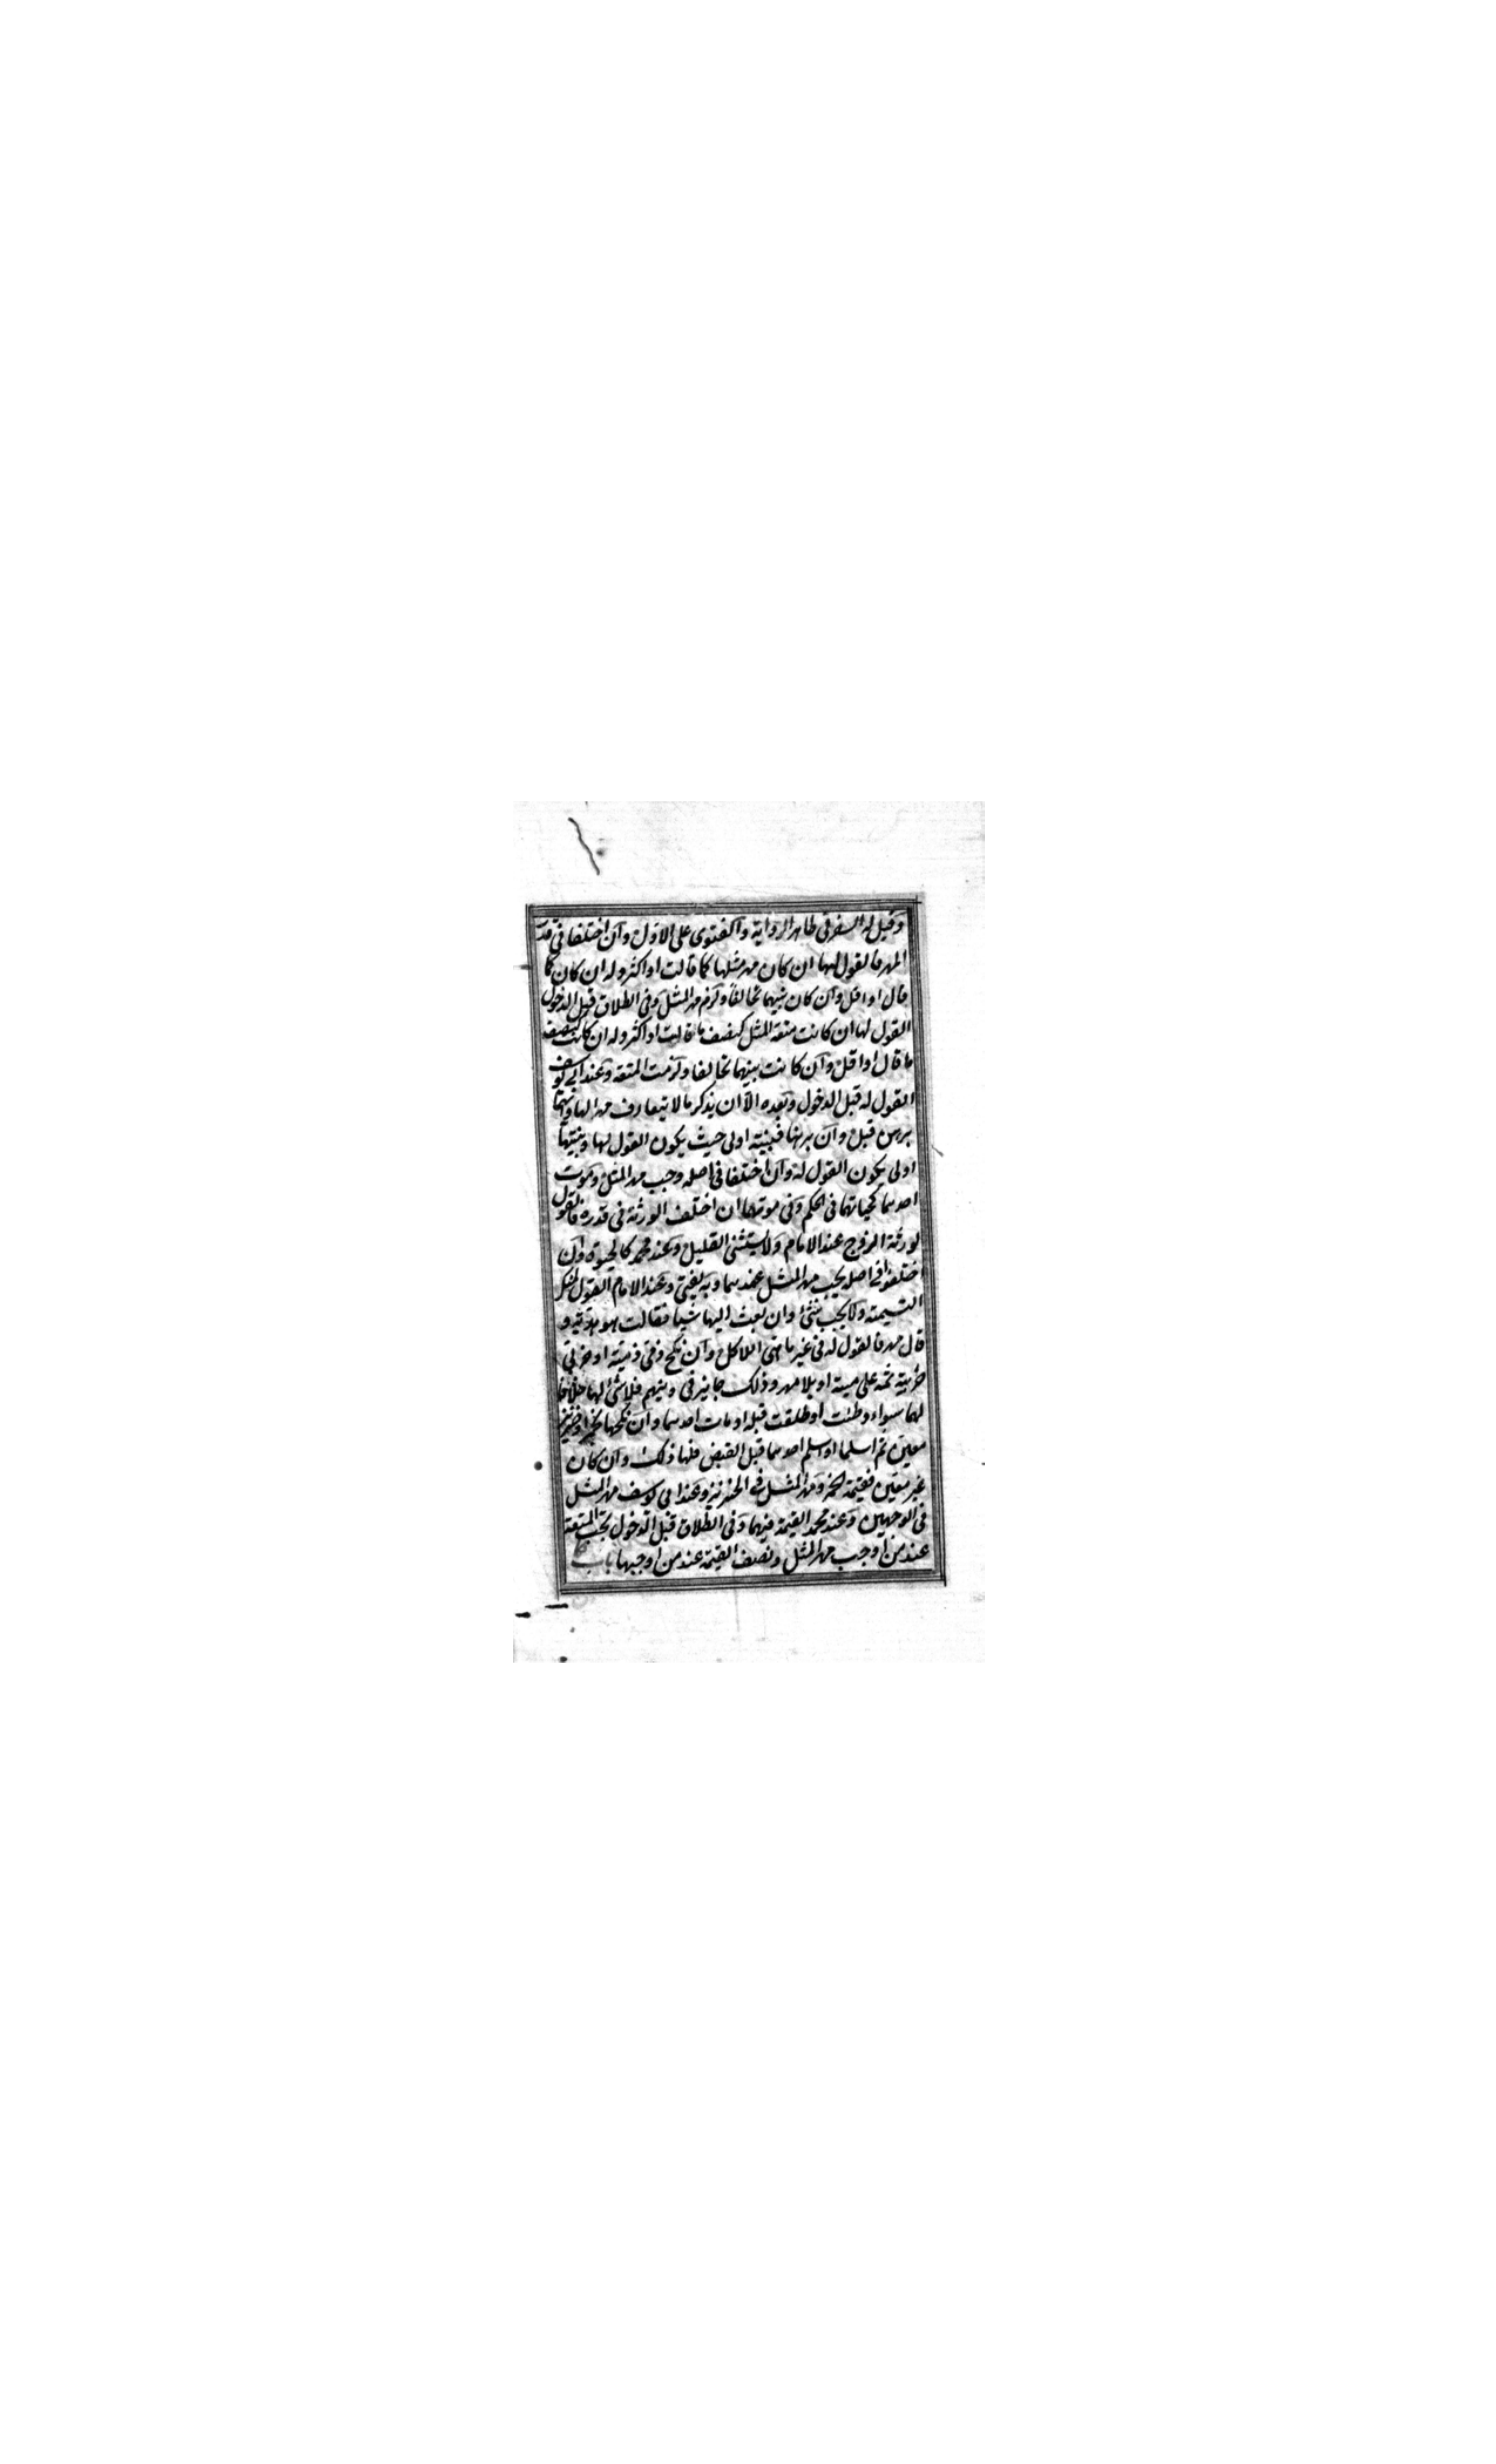 وقيل له السفر في ظاهر الرواية والفتوى على الاول وان اختلفا في قدر
المهر فالقول لها ان كان مهر مثلها كما قالت او اكثر وله ان كان كما
قال او اقل وان كان بينهما تحالفا ولزم مهر المثل وفي الطلاق قبل الدخول
القول لها ان كانت متعة المثل كنصف ما قالت او اكثر وله ان كانت كنصف
ما قال او اقل وان كانت بينهما تحالفا ولزمت المتعة وعند ابي يوسف
القول له قبل الدخول وبعده الا ان يذكر ما لا يتعارف مهرا لها وايهما
برهن قبل وان برهنا فبينته اولى حيث يكون القول لها وبينتها
اولى يكون القول له وان اختلفا في اصله وجب مهر المثل وموت
احدهما كحياتهما في الحكم وفي موتهما ان اختلف الورثة في قدره فالقول
لورثة الزوج عند الامام ولا يستثنى القليل وعند محمد كالحيوة وان
اختلفوا في اصله يجب مهر المثل عندهما وبه يفتى وعند الامام القول لمنكر
التسمية ولا يجب شئ وان بعث اليها شيا فقالت هو هدية و
قال مهر فالقول له في غير ما هيئ للاكل وان نكح ذمي ذمية او حربي
حربية ثمه على ميتة او بلا مهر وذلك جايز في دينهم فلا شئ لها خلافا
لهما سواء وطئت او طلقت قبله او مات احدهما وان نكحها بخمر او خنزير
معين ثم اسلما او اسلم احدهما قبل القبض فلها ذلك وان كان
غير معين فقيمة الخمر ومهر المثل في الخنزير وعند ابي يوسف مهر المثل
في الوجهين وعند محمد القيمة فيهما وفي الطلاق قبل الدخول يجب المتعة
عند من اوجب مهر المثل ونصف القيمة عند من اوجبها باب